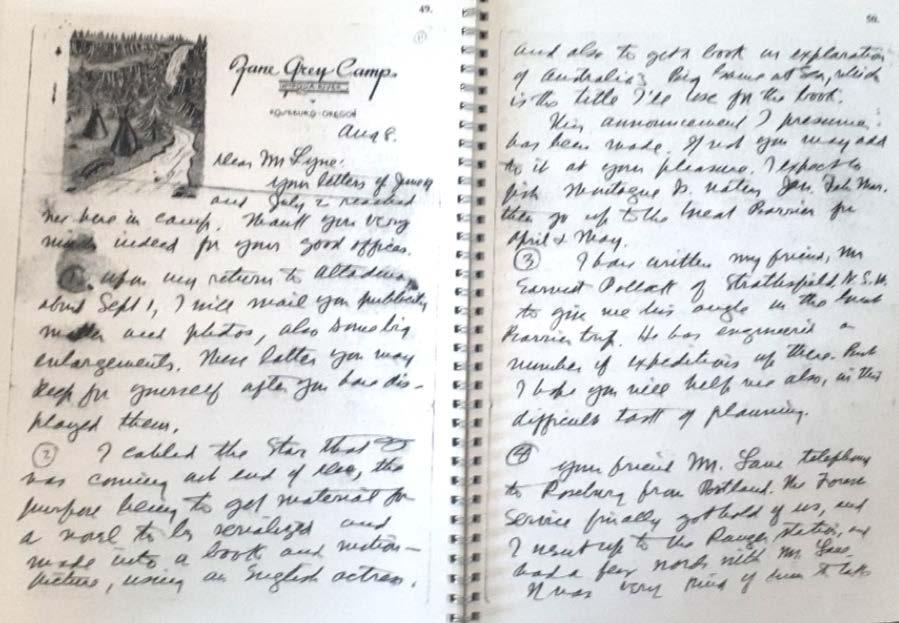 49.
①
Zane Grey Camp
UMPQUA RIVER
ROSEBURG · OREGON
Aug 8.
Dear Mr Lyne:
your letters of June
and July 2 reached
me here in camp. Thank you very
much indeed for your good offices.
① Upon my return to Altadena
about Sept 1, I will mail you publicity
matter and photos, also some big
enlargements. These latter you may
keep for yourself after you have dis-
played them.
② I cabled the Star that I
was coming out end of Dec, the
purpose being to get material for
a novel to be serialized and
made into a book and motion-
picture, using an English actress,
50.
and also to get a book on explanation
of Australia's Big Game at Sea, which
is the title I'll use for the book.
This announcement I presume
has been made. If not you may add
to it at your pleasure. I expect to
fish Montague &. waters Jan. Feb. Mar.
then go up to the Great Barrier for
April & May.
③ I have written my friend, Mr
Earnest Pollack of Strathfield, N.S.W.
to give me his angle on the Great
Barrier trip. He has engineered a
number of expeditions up there. But
I hope you will help me also, in this
difficult task of planning.
④ your friend Mr. Lane telephoned
to Roseburg from Portland. The Forest
Service finally got hold of us, and
I went up to the Ranger Station, and
had a few words with Mr. Lane.
It was very kind of him to talk